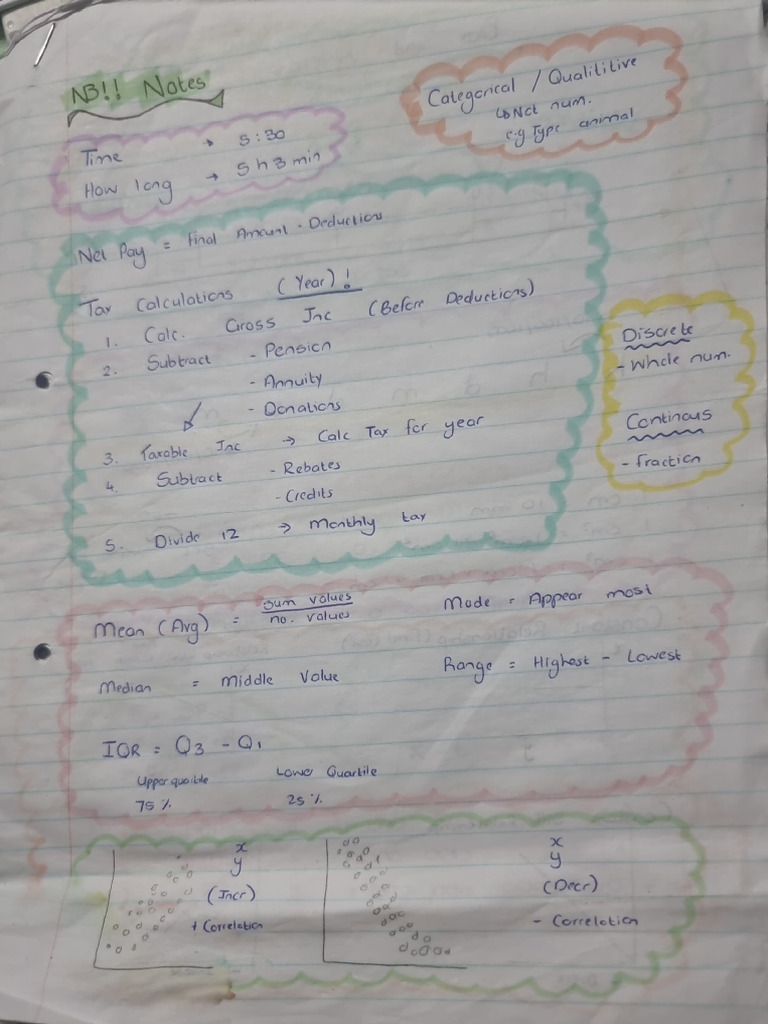 NB!! Notes
Categorical / Qualititive
↳ Not num.
e.g Type animal
Time → 5:30
How long → 5 h 3 min
Net Pay = Final Amount - Deductions
Tax Calculations (Year)!
1. Calc. Gross Inc (Before Deductions)
2. Subtract - Pension
- Annuity
- Donations
3. Taxable Inc → Calc Tax for year
4. Subtract - Rebates
- Credits
5. Divide 12 → Monthly tax
Discrete
- Whole num.
Continous
- fraction
Mean (Avg) = sum values / no. values
Mode = Appear most
Median = Middle Value
Range = Highest - Lowest
IQR = Q3 - Q1
Upper Lower Quartile
75% 25%
x
y
(Incr)
+ Correlation
x
y
(Decr)
- Correlation